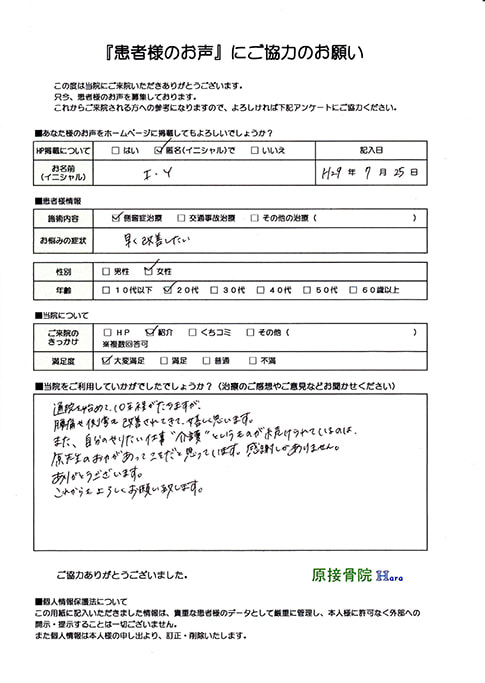 『患者様のお声』にご協力のお願い
この度は当院にご来院いただきありがとうございます。
只今、患者様のお声を募集しております。
これからご来院される方への参考になりますので、よろしければ下記アンケートにご協力ください。
■あなた様のお声をホームページに掲載してもよろしいでしょうか？
HP掲載について □はい ☑匿名(イニシャル)で □いいえ 記入日
お名前
(イニシャル) I.Y H29年 7月 25日
■患者様情報
施術内容 ☑側彎症治療 □交通事故治療 □その他の治療( )
お悩みの症状 早く改善したい
性別 □男性 ☑女性
年齢 □10代以下 ☑20代 □30代 □40代 □50代 □60歳以上
■当院について
ご来院の
きっかけ □HP ☑紹介 □くちコミ □その他( )
※複数回答可
満足度 ☑大変満足 □満足 □普通 □不満
■当院をご利用していかがでしたでしょうか？(治療のご感想やご意見などお聞かせください)
通院を始めて、10年程がたちますが、
腰痛や側彎も改善されてきて、嬉しく思います。
また、自分のやりたい仕事"介護"というものが続けられているのは、
原先生のおかげがあってこそだと思っています。感謝しかありません。
ありがとうございます。
これからもよろしくお願い致します。
ご協力ありがとうございました。
原接骨院 Hara
■個人情報保護法について
この用紙に記入いただきました情報は、貴重な患者様のデータとして厳重に管理し、本人様に許可なく外部への
開示・提示することは一切ございません。
また個人情報は本人様の申し出より、訂正・削除いたします。